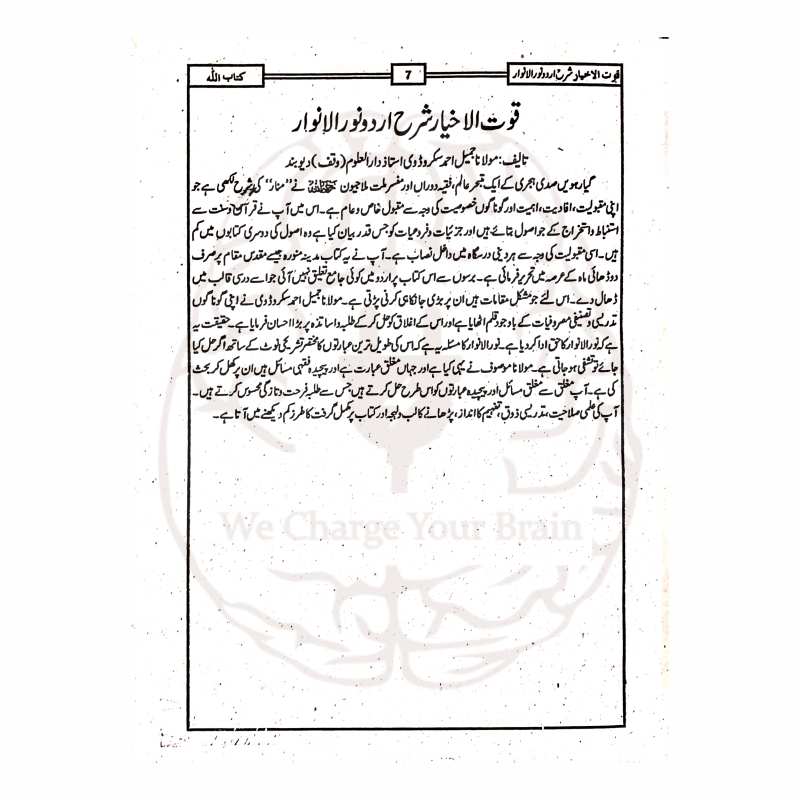 قوت الاخیار شرح اردو نور الانوار
7
کتاب اللہ
قوت الاخیار شرح اردو نور الانوار
تالیف: مولانا جمیل احمد سکروڈوی استاذ دار العلوم (وقف) دیوبند
گیارہویں صدی ہجری کے ایک متبحر عالم، فقیہ دوراں اور مفسر ملت ملاجیون نے ”منار“ کی شرح لکھی ہے جو
اپنی مقبولیت، افادیت، اہمیت اور گوناگوں خصوصیت کی وجہ سے مقبول خاص و عام ہے۔ اس میں آپ نے قرآن و سنت سے
استنباط و استخراج کے جو اصول بتائے ہیں اور جزئیات و فروعیات کو جس قدر بیان کیا ہے وہ اصول کی دوسری کتابوں میں کم
ہیں۔ اسی مقبولیت کی وجہ سے ہر دینی درسگاہ میں داخل نصاب ہے۔ آپ نے یہ کتاب مدینہ منورہ جیسے مقدس مقام پر صرف
دو ڈھائی ماہ کے عرصہ میں تحریر فرمائی ہے۔ برسوں سے اس کتاب پر اردو میں کوئی جامع تعلیق نہیں آئی جو اسے درسی قالب میں
ڈھال دے۔ اس لئے جو مشکل مقامات ہیں ان پر بڑی جانکاہی کرنی پڑتی ہے۔ مولانا جمیل احمد سکروڈوی نے اپنی گوناگوں
تدریسی و تصنیفی مصروفیات کے باوجود قلم اٹھایا ہے اور اس کے اغلاق کو حل کر کے طلبہ و اساتذہ پر بڑا احسان فرمایا ہے۔ حقیقت یہ
ہے کہ نور الانوار کا حق ادا کر دیا ہے۔ نور الانوار کا مسئلہ یہ ہے کہ اس کی طویل ترین عبارتوں کا مختصر تشریحی نوٹ کے ساتھ اگر حل کیا
جائے تو تشفی ہو جاتی ہے۔ مولانا موصوف نے یہی کیا ہے اور جہاں مغلق عبارت ہے اور پیچیدہ فقہی مسائل ہیں ان پر کھل کر بحث
کی ہے۔ آپ مغلق سے مغلق مسائل اور پیچیدہ عبارتوں کو اس طرح حل کرتے ہیں جس سے طلبہ فرحت و تازگی محسوس کرتے ہیں۔
آپ کی علمی صلاحیت، تدریسی ذوق، تفہیم کا انداز، پڑھانے کا لب و لہجہ اور کتاب پر مکمل گرفت کا طرز کم دیکھنے میں آتا ہے۔
We Charge Your Brain